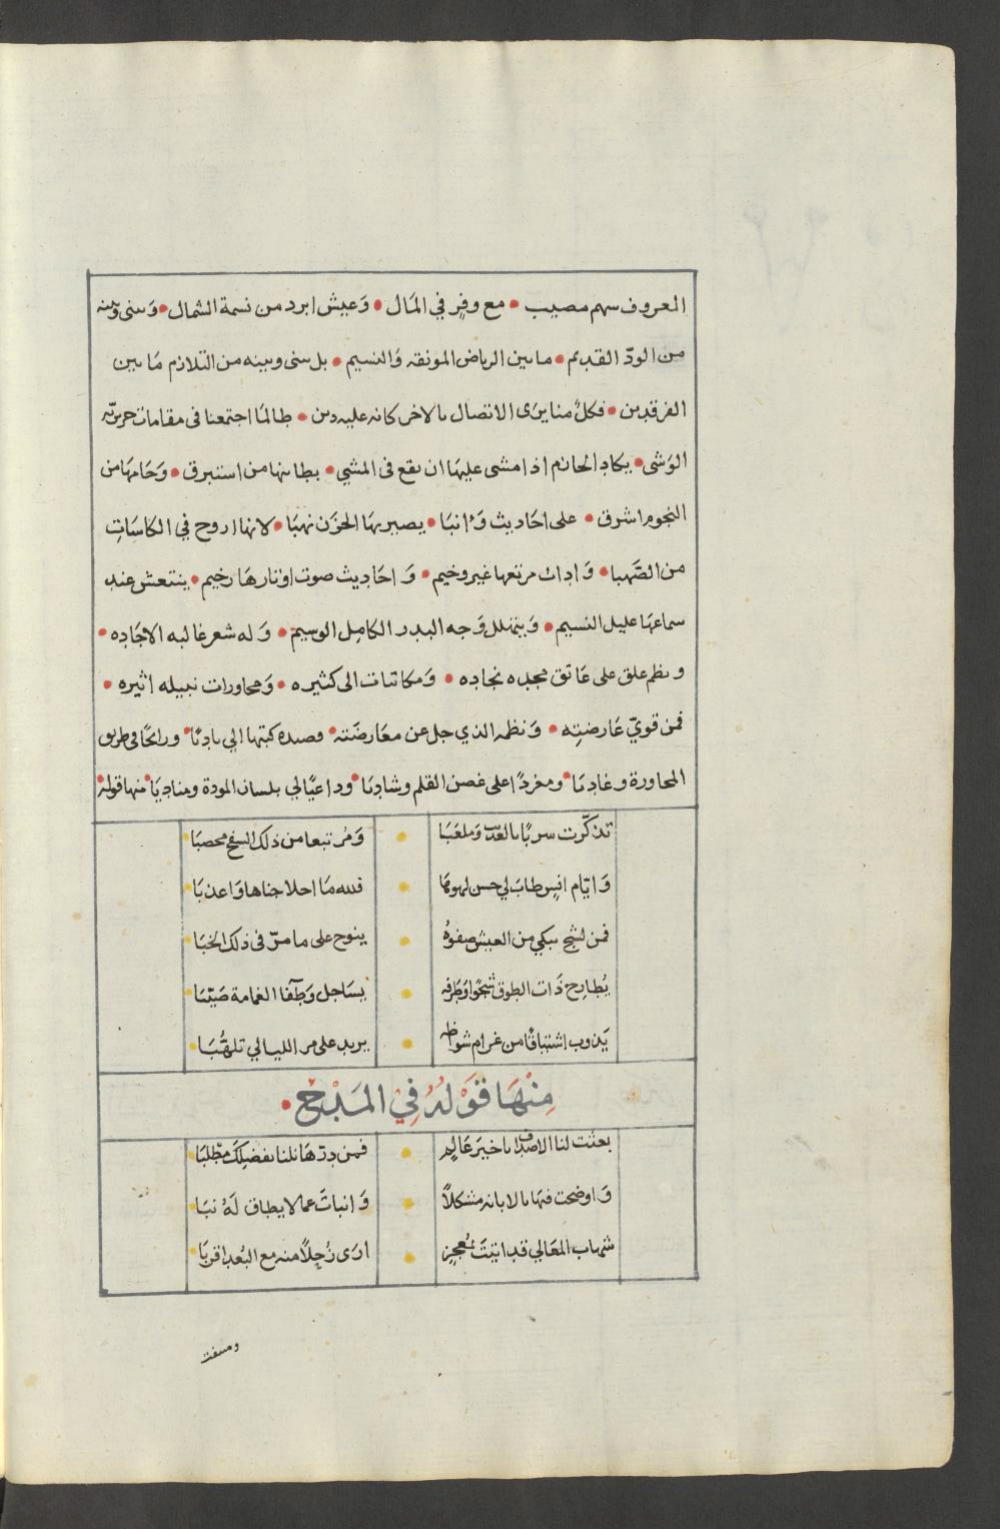 المعروف سهم مصيب • مع وفرٍ في المَال • وَعيش ابرد من نسمة الشمال • وَبينى وَبينه
من الودّ القديم • مابين الرياض المونقه وَالنسيم • بل بينى وبينه من التلازم مَا بين
الفرقدين • فكلٌ منا يرَى الاتصال بالاخر كانه عليه دين • طالمَا اجتمعنا فى مقامات حريريّه
الوَشى • يكاد الحائم اذا مشى عليهَا ان يقع فى المشي • بطاينها من استبرق • وَحَامهَا من
النجوم اشرق • على احَاديث وَانبَا • يصير بهَا الحزَن نهبَا • لانها اروح في الكاسَاتِ
من الصَّهبا • وَاداب مرتعها غير وخيم • وَاحَاديث صوت اوتارهَا رخيم • ينتعش عند
سماعهَا عليل النسيم • وَيتهلل وَجه البدر الكامِل الوسيم • وَله شعر غالبه الاجَاده •
ونظم علق على عَاتق مجده نجاده • وَمكاتبات الى كثيره • وَمحاورات نبيله اثيره •
فمن قويّ عَارضتِه • وَنظمه الذي جل عن معَارضَته • قصيده كتبها الي بادئًا • ورائحًا فى طريق
المحاورة وغاديَا • ومغردًا على غصن القلم وشاديَا • وداعيًا لي بلسان المودة ومناديَا • منها قوله •
تذكّرت سربًا بالعدّيب وَملعَبَا • وَمُرتبعا من ذلك السفح محصبَا
وَايّام انسٍ طابَ لي حسن لهوهَا • فلله مَا احلا جناها وَاعذبَا
فمن لشجٍ يبكي من العيش صفوهُ • ينوح على ما مرّ فى ذلك الخبَا
يُطارح ذَات الطوق شجوًا وَطَرفه • يسَاجل وَطفَا الغمامة صَيّبَا
يَذوب اشتياقًا من غرام شواظه • يريد على مر الليالي تلهُّبَا
مِنْهَا قَوْلُهُ فِيْ المَدْح •
بعثت لنا الاصداف يا خيرَ عَالمٍ • فمن درّهَا نلنا بفضلِكَ مطّلبَا
وَاوضحت فيهَا بالابانه مشكلاً • وَانباتَ عما لا يطاق لَهُ نبَا
شهاب المعَالي قد اتيتَ بمُعجزٍ • ارَى زُحلاً منه مع البُعد اقربَا